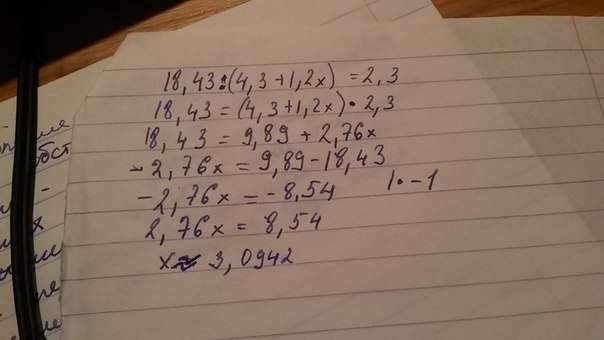 18,43:(4,3+1,2x) = 2,3
18,43 = (4,3+1,2x)·2,3
18,43 = 9,89 + 2,76x
-2,76x = 9,89-18,43
-2,76x = -8,54 |·-1
2,76x = 8,54
x≈ 3,0942